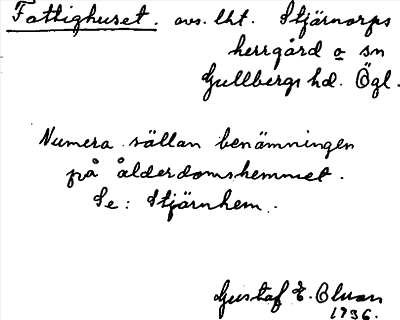 Fattighuset. avs. lht. Stjärnorps
herrgård o sn
Gullbergs hd. Ögl.
Numera sällan benämningen
på ålderdomshemmet.
Se: Stjärnhem.
Gustaf E. Olson
1936.